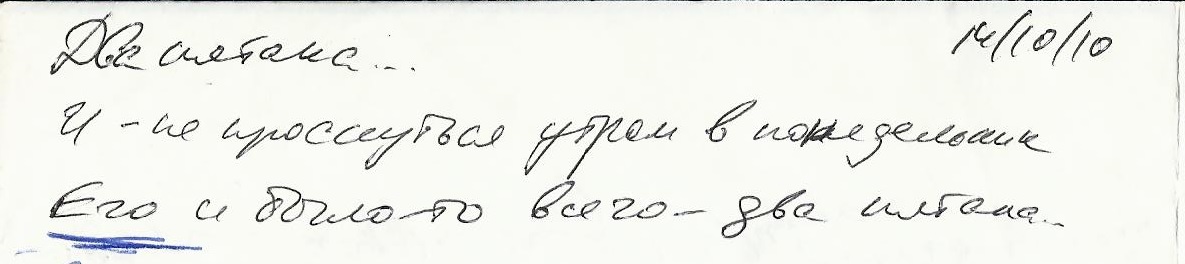 Два пятака... 14/10/10
И - не проснуться утром в понедельник
Его и было-то всего - два пятака...